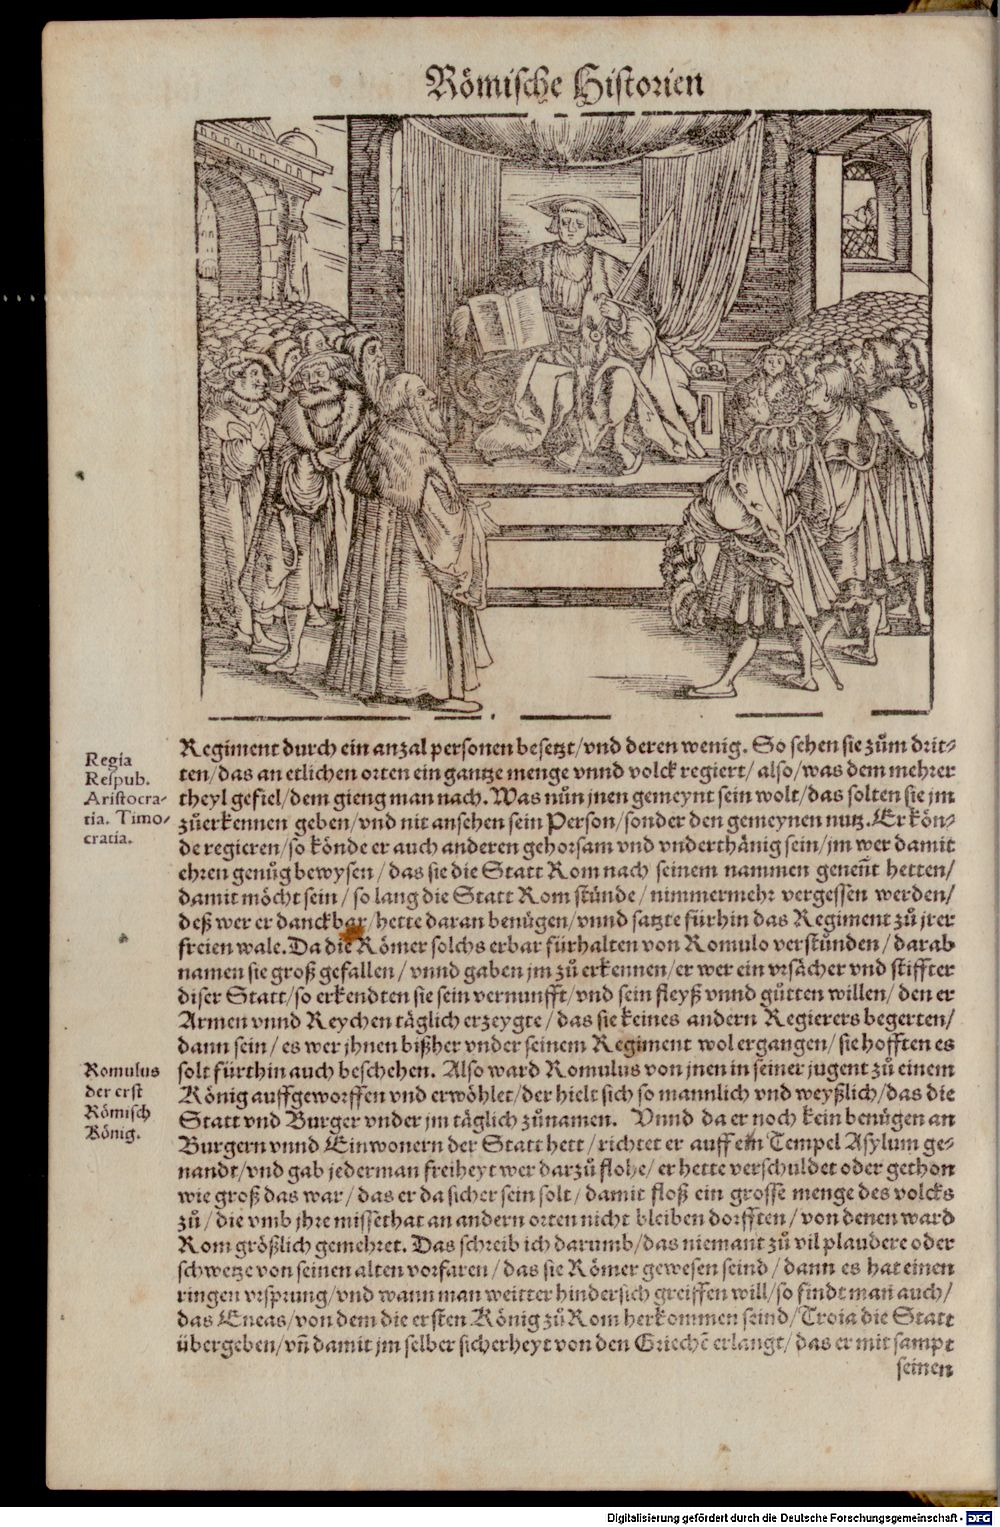 Römische Historien
Regia
Respub.
Aristocra-
tia. Timo-
cratia.
Regiment durch ein anzal personen besetzt/vnd deren wenig. So sehen sie zům drit-
ten/das an etlichen orten ein gantze menge vnnd volck regiert/also/was dem mehrer
theyl gefiel/dem gieng man nach. Was nůn jnen gemeynt sein wolt/das solten sie jm
zůerkennen geben/vnd nit ansehen sein Person/sonder den gemeynen nutz. Er kön-
de regieren/so könde er auch anderen gehorsam vnd vnderthänig sein/jm wer damit
ehren genůg bewysen/das sie die Statt Rom nach seinem nammen geneñt hetten/
damit möcht sein/so lang die Statt Rom stünde/nimmermehr vergessen werden/
deß wer er danckbar/hette daran benügen/vnnd satzte fürhin das Regiment zů jrer
freien wale. Da die Römer solchs erbar fürhalten von Romulo verstůnden/darab
namen sie groß gefallen/vnnd gaben jm zů erkennen/er wer ein vrsächer vnd stiffter
diser Statt/so erkendten sie sein vernunfft/vnd sein fleyß vnnd gůtten willen/den er
Armen vnnd Reychen täglich erzeygte/das sie keines andern Regierers begerten/
dann sein/es wer jhnen bißher vnder seinem Regiment wol ergangen/sie hofften es
solt fürthin auch beschehen. Also ward Romulus von jnen in seiner jugent zů einem
König auffgeworffen vnd erwöhlet/der hielt sich so mannlich vnd weyßlich/das die
Statt vnd Burger vnder jm täglich zůnamen. Vnnd da er noch kein benügen an
Burgern vnnd Einwonern der Statt hett/richtet er auff ein Tempel Asylum ge-
nandt/vnd gab jederman freiheyt wer darzů flohe/er hette verschuldet oder gethon
wie groß das war/das er da sicher sein solt/damit floß ein grosse menge des volcks
zů/die vmb jhre missethat an andern orten nicht bleiben dorfften/von denen ward
Rom größlich gemehret. Das schreib ich darumb/das niemant zů vil plaudere oder
schwetze von seinen alten vorfaren/das sie Römer gewesen seind/dann es hat einen
ringen vrsprung/vnd wann man weitter hindersich greiffen will/so findt man auch/
das Eneas/von dem die ersten König zů Rom herkommen seind/Troia die Statt
übergeben/vñ damit jm selber sicherheyt von den Griechē erlangt/das er mit sampt
seinen
Romulus
der erst
Römisch
König.
Digitalisierung gefördert durch die Deutsche Forschungsgemeinschaft - DFG